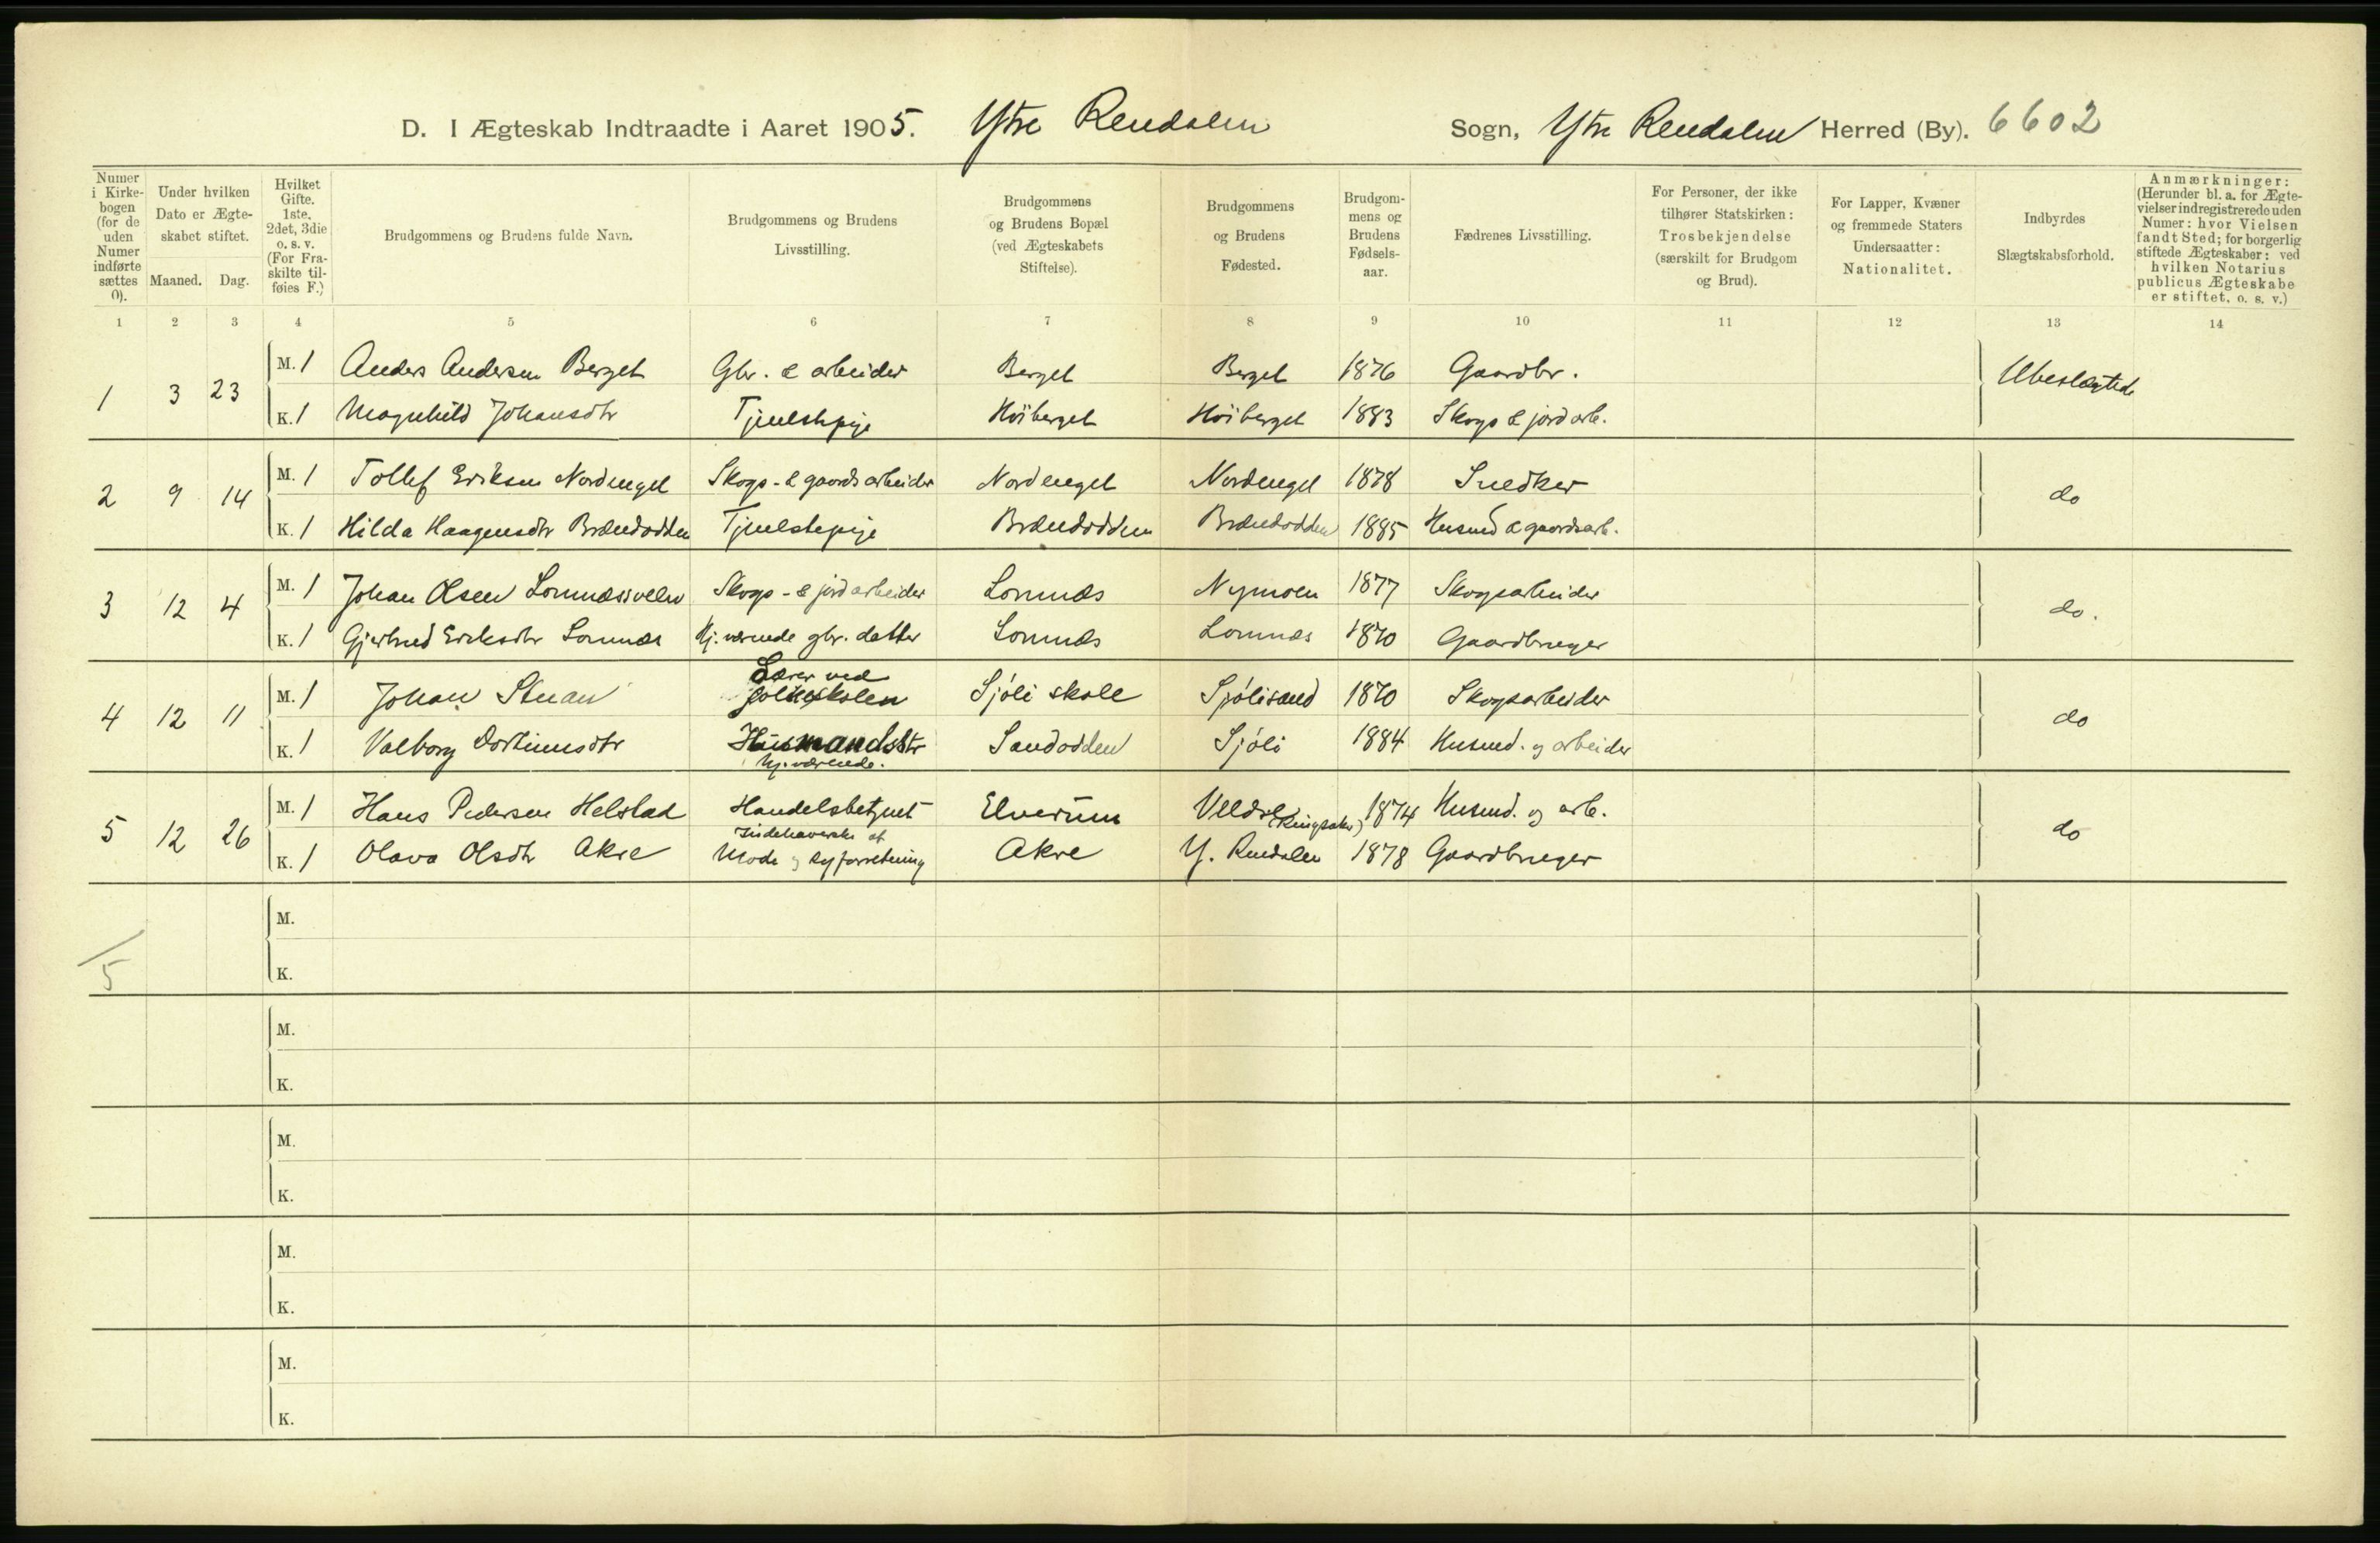 D. I Ægteskab Indtraadte i Aaret 1905. Ytre Rendalen Sogn, Ytre Rendalen Herred (By). 6602
Numer i Kirkebogen (for de uden Numer indførte sættes 0).
Under hvilken Dato er Ægteskabet stiftet.
Maaned. Dag.
Hvilket Gifte. 1ste, 2det, 3die o. s. v. (For Fraskilte tilføies F.)
Brudgommens og Brudens fulde Navn.
Brudgommens og Brudens Livsstilling.
Brudgommens og Brudens Bopæl (ved Ægteskabets Stiftelse).
Brudgommens og Brudens Fødested.
Brudgommens og Brudens Fødselsaar.
Fædrenes Livsstilling.
For Personer, der ikke tilhører Statskirken: Trosbekjendelse (særskilt for Brudgom og Brud).
For Lapper, Kvæner og fremmede Staters Undersaatter: Nationalitet.
Indbyrdes Slægtskabsforhold.
Anmærkninger: (Herunder bl. a. for Ægtevielser indregistrerede uden Numer: hvor Vielsen fandt Sted; for borgerlig stiftede Ægteskaber: ved hvilken Notarius publicus Ægteskabet er stiftet, o. s. v.)
1 2 3 4 5 6 7 8 9 10 11 12 13 14
1 3 23 M. 1 Anders Andersen Berget Gbr. & arbeider Berget Berget 1876 Gaardbr. Ubeslægtede
K. 1 Magnhild Johansdtr Tjenestepige Høiberget Høiberget 1883 Skogs & jordarb.
2 9 14 M. 1 Tollef Eriksen Nordenget Skogs- & gaardsarbeider Nordenget Nordenget 1878 Snedker do
K. 1 Hilda Haagensdtr Brændodden Tjenestepige Brændodden Brændodden 1885 Husmd & gaardsarb.
3 12 4 M. 1 Johan Olsen Lomnæssveen Skogs- & jordarbeider Lomnæs Nymoen 1877 Skogsarbeider do.
K. 1 Gjertrud Eriksdtr Lomnæs Hj. værende gbr. datter Lomnæs Lomnæs 1870 Gaardbruger
4 12 11 M. 1 Johan Stuan Lærer ved folkeskolen Sjøli skole Sjølisand 1870 Skogsarbeider do
K. 1 Valborg Dortinusdtr Husmandsdtr hj. værende. Sandodden Sjøli 1884 Husmd. og arbeider
5 12 26 M. 1 Hans Pedersen Helstad Handelsbetjent Elverum Veldre (Ringsaker) 1874 Husmd. og arb. do
K. 1 Olava Olsdtr Akre Indehaverske af Mode og syforretning Akre Y. Rendalen 1878 Gaardbruger
M.
5
K.
M.
K.
M.
K.
M.
K.
M.
K.